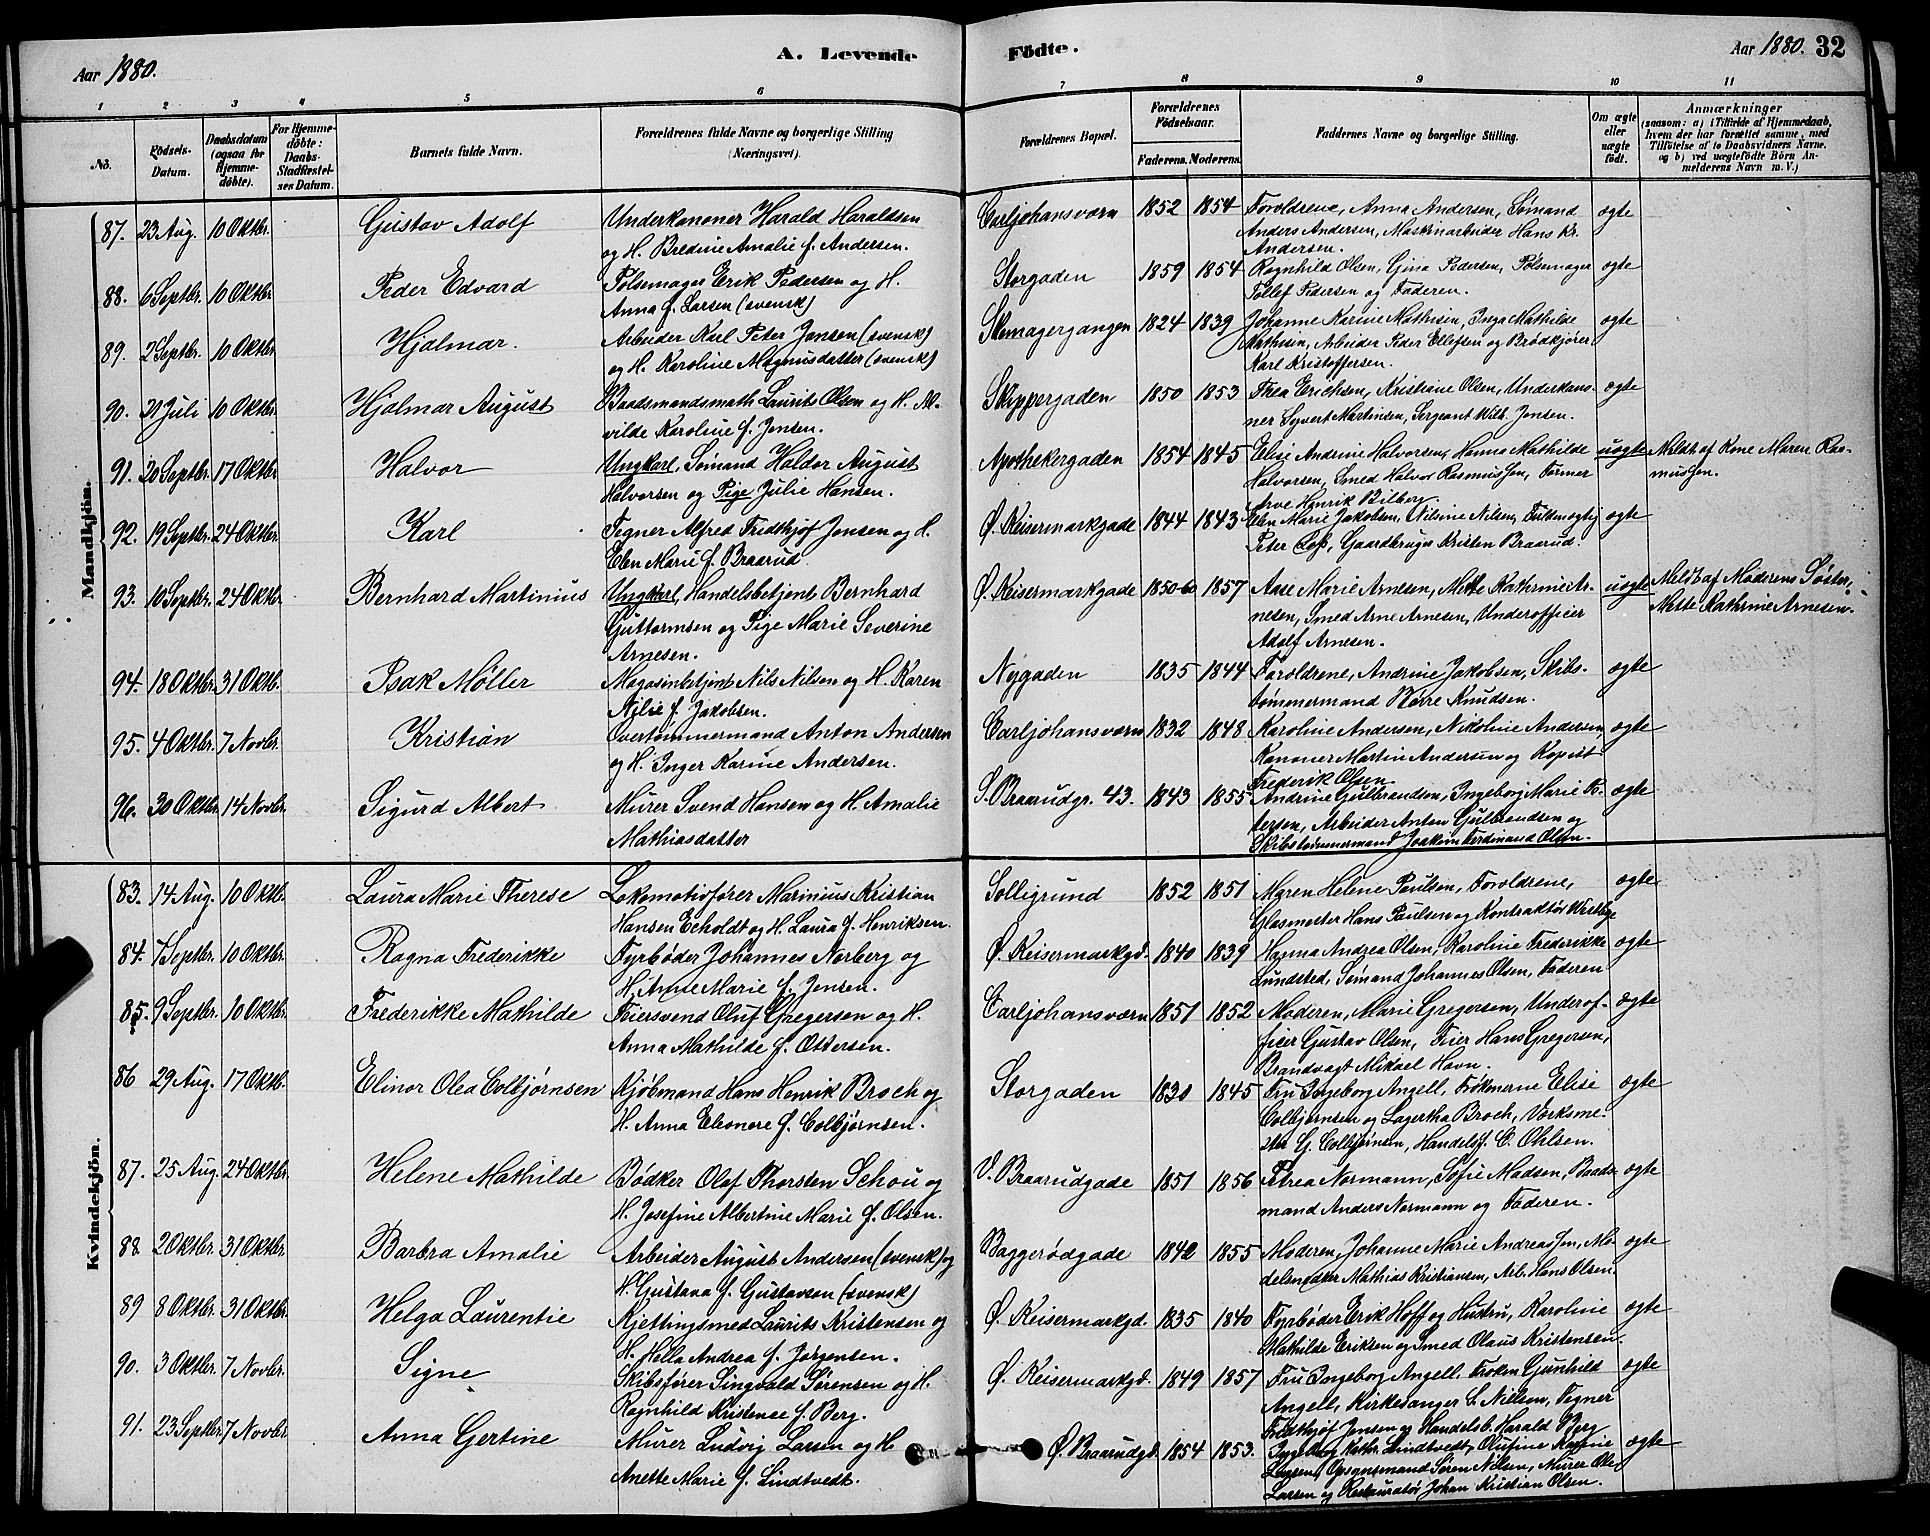 Aar 1880.
A. Levende Födte.
Aar 1880. 32
1 2 3 4 5 6 7 8 9 10 11
No.
Födsels-Datum.
Daabsdatum (ogsaa for Hjemme-döbte).
For Hjemme-döbte: Daabs-Stadfæstel-ses Datum.
Barnets fulde Navn.
Forældrenes fulde Navne og borgerlige Stilling (Næringsvei).
Forældrenes Bopæl.
Forældrenes Födselsaar.
Faderens. Moderens.
Faddernes Navne og borgerlige Stilling.
Om ægte eller uægte födt.
Anmærkninger (saasom: a) i Tilfælde af Hjemmedaab, hvem der har forrettet samme, med Tilföielse af to Daabsvidners Navne, og b) ved uægtefödte Börn An-melderens Navn m. V.)
Mandkjön.
87. 23 Aug. 10 Oktbr. Gustav Adolf Underkanoner Harald Haraldsen Carljohansværn 1852 1854 Foroldrene, Anna Andersen, Sömand ægte
og H. Bredine Amalie f. Andersen. Anders Andersen, Maskinarbeider Hans Kr.
Andersen.
88. 6 Septbr. 10 Oktbr. Peder Edvard Pølsemager Erik Pedersen og H. Storgaden 1859 1854 Ragnhild Olsen, Gina Pedersen, Pølsemager ægte
Anna f. Larsen (svensk) Tollef Pedersen og Faderen.
89. 2 Septbr. 10 Oktbr. Hjalmar. Arbeider Karl Peter Jensen (svensk) Skomagergangen 1824 1839 Johanne Karine Mathisen, Inga Mathilde ægte
og H. Karoline Magnusdatter (svensk) Mathisen, Arbeider Peder Ellefsen og Brödkjörer
Karl Kristoffersen.
90. 21 Juli 10 Oktbr. Hjalmar August Baadsmandsmath Laurits Olsen og H. Al- Skippergaden 1850 1853 Thea Erichsen, Kristiane Olsen, Underkano- ægte
vilde Karoline f. Jensen. ner Syvert Martinsen, Sergeant Wilh. Jensen.
91. 20 Septbr. 17 Oktbr. Halvor Ungkarl, Sömand Haldor August Apothekergaden 1854 1845 Elise Andrine Halvorsen, Hanna Mathilde uægte Meldt af Kone Maren Ras-
Halvorsen og Pige Julie Hansen. Halvorsen, Smed Halvor Rasmussen, Former mussen.
Arve Henrik Bilberg.
92. 19 Septbr. 24 Oktbr. Karl Tegner Alfred Fridthjof Jensen og H. Ø. Keisermarkgade 1844 1843 Elen Marie Jakobsen, Nilsine Nilsen, Fuldmægtig ægte
Elen Marie f. Braarud Peter Gaardbruger Kristen Braarud.
93. 10 Septbr. 24 Oktbr. Bernhard Martinius Ungkarl, Handelsbetjent Bernhard Ø. Keisermarkgade 1850-60 1857 Aase Marie Arnesen, Mette Kathrine Ar- uægte Meldt af Moderens Søster,
Guttormsen og Pige Marie Severine nesen, Smed Arne Arnesen, Underofficer Mette Kathrine Arnesen.
Arnesen. Adolf Arnesen.
94. 18 Oktbr. 31 Oktb. Isak Møller Magasinbetjent Nils Nilsen og H. Karen Nygaden 1835 1844 Foroldrene, Andrine Jakobsen, Skibs- ægte
Nilie f. Jakobsen. tømmermand Knudsen.
95. 4 Oktbr. 7 Novbr. Kristian Overtømmermand Anton Andersen Carljohansværn 1832 1848 Karoline Andersen, Nikoline Andersen, ægte
og H. Inger Karine Andersen. Kanoner Martin Andersen og Kopist
Frederik Olsen.
96. 30 Oktbr. 14 Novbr. Sigurd Albert Murer Svend Hansen og H. Amalie S. Braarudgr. 43. 1843 1855 Andrine Gulbrandsen, Ingeborg Marie P- ægte
Mathiasdatter tersen, Arbeider Anton Gulbrandsen og
Skibstømmermand Joakim Ferdinand Olsen.
Kvindekjön.
83. 14 Aug. 10 Oktb. Laura Marie Therese Lokomotivfører Marinius Kristian Solligrund 1852 1851 Maren Helene Paulsen, Foroldrene, ægte
Hansen Echoldt og H. Laura f. Henriksen. Glasmester Hans Paulsen og Kontraktør
84. 7 Septbr. 10 Oktbr. Ragna Frederikke Fyrbøder Johannes Norberg og Ø. Keisermarkgd. 1840 1839 Hanna Andrea Olsen, Karoline Frederikke ægte
H. Anne Marie f. Jensen. Lundsted, Sømand Johannes Olsen, Faderen
85. 9 Septbr. 10 Oktbr. Frederikke Mathilde Feiersvend Oluf Gregersen og H. Carljohansværn 1851 1852 Moderen, Marie Gregersen, Underof- ægte
Anna Mathilde f. Ottersen. ficer Gustav Olsen, Feier Hans Gregersen,
Brandvagt Mikael Havn.
86 29 Aug. 17 Oktb. Elinor Olea Colbjørnsen Kjøbmand Hans Henrik Broch og Storgaden 1830 1845 Fru Ingeborg Angell, Frøknerne Elise ægte
H. Anna Eleonore f. Colbjørnsen. Colbjørnsen og Lagertha Broch, Værksme-
ster G. Colbjørnsen, Handelsf. C. Ohlsen.
87. 25 Aug. 24 Oktbr. Helene Mathilde Bødker Olof Thorsten Schou og V. Braarudgade 1851 1856 Petrea Normann, Sofie Madsen, Baads- ægte
H. Josefine Albertine Marie f. Olsen. mand Anders Normann og Faderen.
88 2 Oktbr. 31 Oktbr. Barbra Amalie Arbeider August Andersen (svensk) og Baggerødgade 1842 1855 Moderen, Johanne Marie Andreassen, Mo- ægte
H. Gustava f. Gustavsen (svensk) delsnedker Mathias Kristiansen, Arb. Hans Olsen.
89 8 Oktbr. 31 Oktbr. Helga Laurentie Kjettingsmed Laurits Kristensen og Ø. Keisermarkgd. 1835 1840 Fyrbøder Erik Hoff og Hustru, Karoline ægte
H. Hella Andrea f. Jørgensen. Mathilde Eriksen og Smed Olaus Kristensen.
90. 3 Oktbr. 7 Novbr. Signe Skibsfører Singvald Sørensen og H. Ø. Keisermarkgd. 1849 1857 Fru Ingeborg Angell, Frøken Gunhild ægte
Ragnhild Kristence f. Berg. Angell, Kirkesanger L. Nielsen, Tegner
Fridthjof Jensen og Handelsb. Harald Berg
91. 23 Septbr. 7 Novbr. Anna Gertine Murer Ludvig Larsen og H. Ø. Braarudgd. 1854 1853. Ingeborg Kathr. Lindtvedt, Olufine Karine ægte
Anette Marie f. Lindtvedt. Larsen, Opsynsmand Søren Nilsen, Murer Ole
Larsen og Restauratør Johan Kristian Olsen.